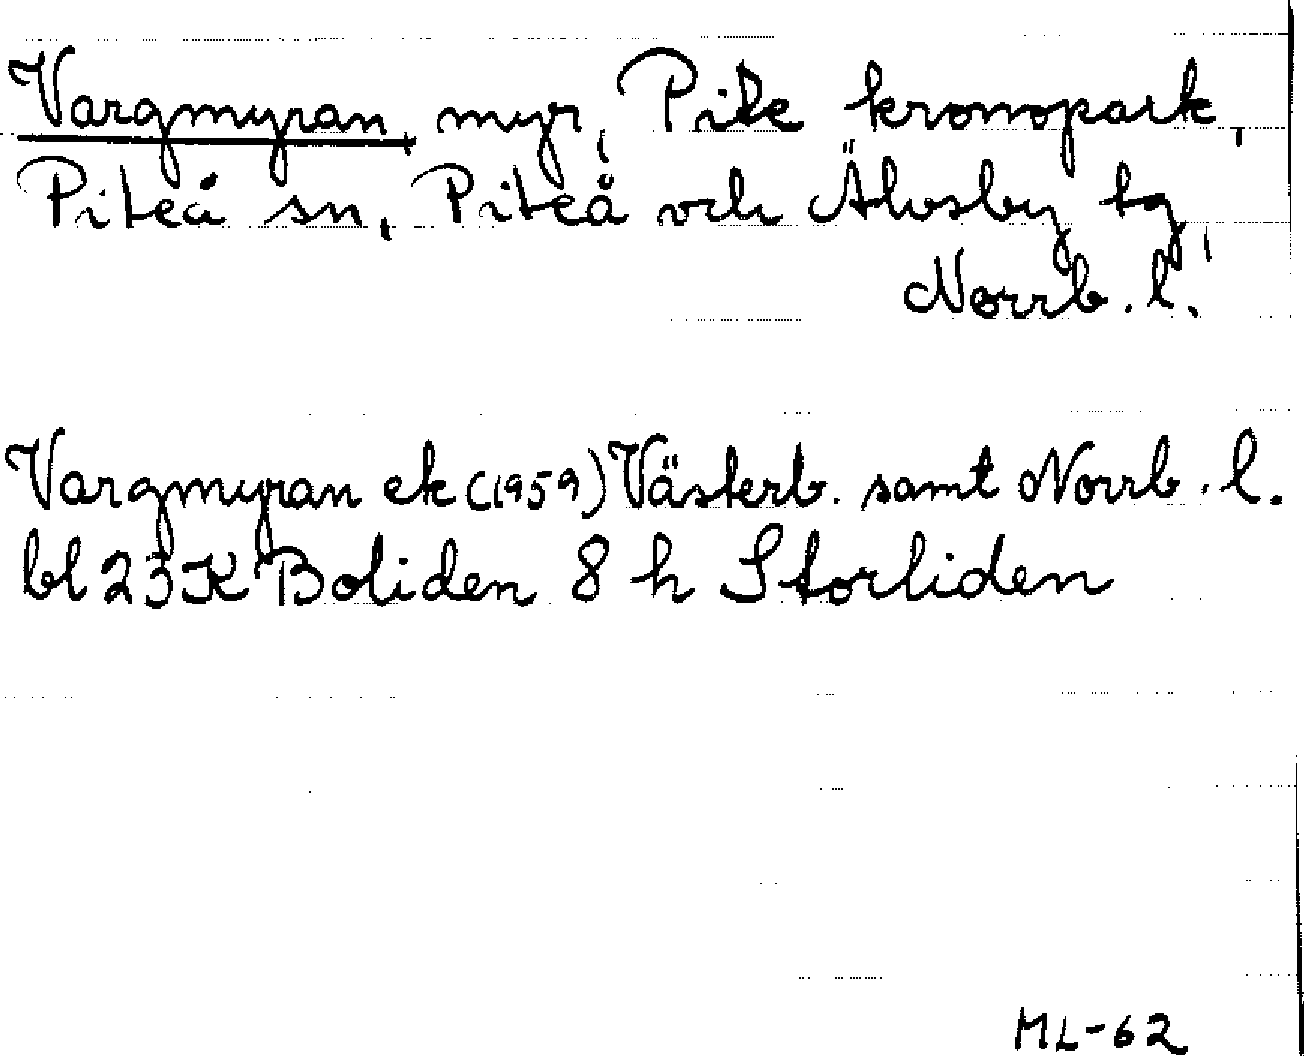 Vargmyran, myr, Pite kronopark,
Piteå sn, Piteå och Älvsby tg,
Norrb. l.
Vargmyran ek (1959) Västerb. samt Norrb. l.
bl 23 K Boliden 8 h Storliden
ML-62